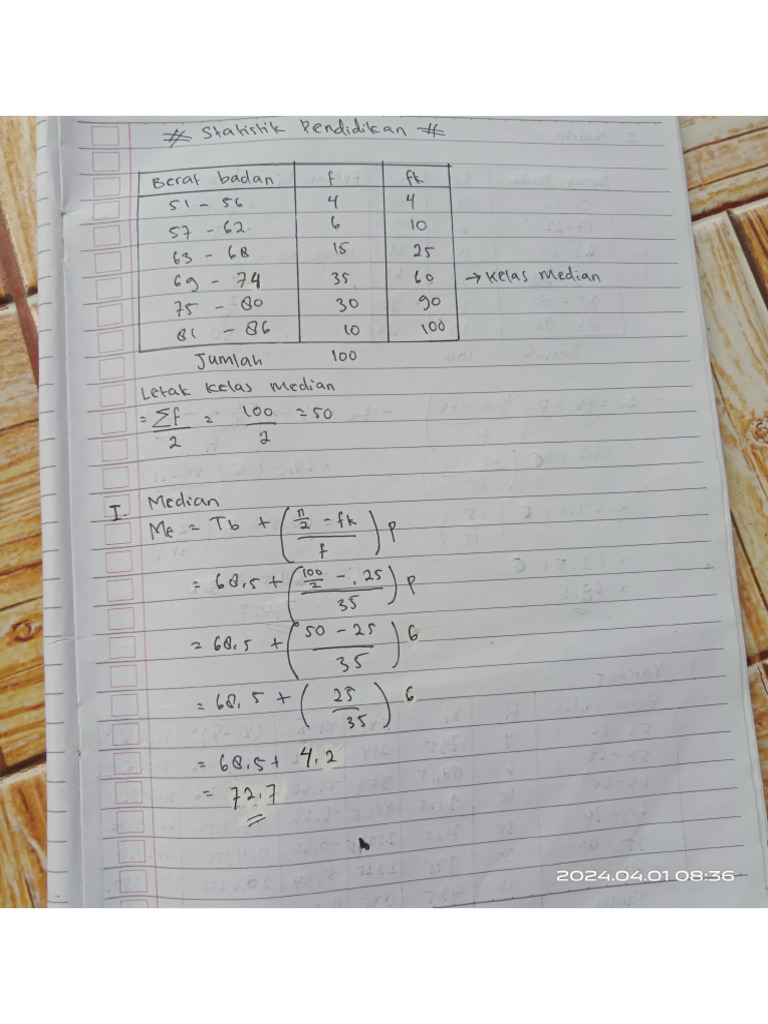 # Statistik Pendidikan #
Berat badan f fk
51 - 56 4 4
57 - 62 6 10
63 - 68 15 25
69 - 74 35 60 → Kelas Median
75 - 80 30 90
81 - 86 10 100
Jumlah 100
Letak Kelas Median
= Σf/2 = 100/2 = 50
I. Median
Me = Tb + ( (n/2 - fk) / f ) p
= 68.5 + ( (100/2 - 25) / 35 ) p
= 68.5 + ( (50 - 25) / 35 ) 6
= 68.5 + ( 25 / 35 ) 6
= 68.5 + 4.2
= 72.7
2024.04.01 08:36